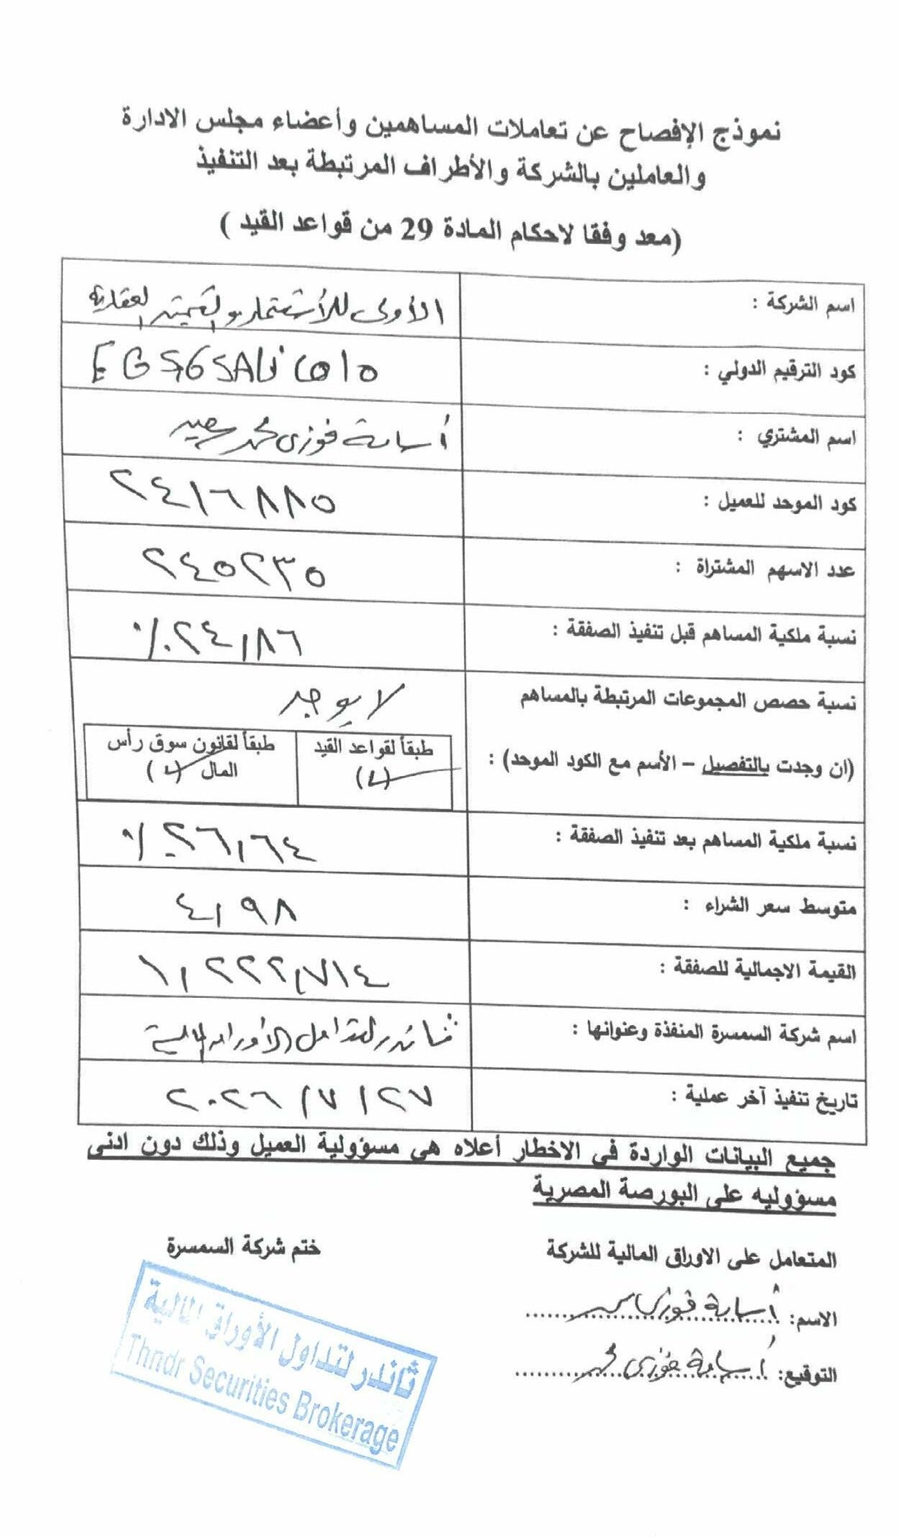 نموذج الإفصاح عن تعاملات المساهمين وأعضاء مجلس الادارة
والعاملين بالشركة والأطراف المرتبطة بعد التنفيذ
(معد وفقا لاحكام المادة 29 من قواعد القيد )
اسم الشركة : الأولى للأستثمار والتنمية العقارية
كود الترقيم الدولي :
اسم المشتري : أسامة فوزى محمد سعيد
كود الموحد للعميل : ٢٤١٦٨٨٥
عدد الاسهم المشتراة : ٢٤٥٢٣٥
نسبة ملكية المساهم قبل تنفيذ الصفقة : ٢٤,٨٦٪
نسبة حصص المجموعات المرتبطة بالمساهم لا يوجد
(ان وجدت بالتفصيل – الأسم مع الكود الموحد) :
طبقاً لقواعد القيد
طبقاً لقانون سوق رأس
المال
نسبة ملكية المساهم بعد تنفيذ الصفقة : ٢٦,٦٤٪
متوسط سعر الشراء : ٤,٩٨
القيمة الاجمالية للصفقة : ١,٢٢٢,٧١٤
اسم شركة السمسرة المنفذة وعنوانها : ثاندر لتداول الأوراق المالية
تاريخ تنفيذ آخر عملية : ٢٠٢٦/٧/٢٧
جميع البيانات الواردة في الاخطار أعلاه هي مسؤولية العميل وذلك دون ادنى
مسؤوليه على البورصة المصرية
المتعامل على الاوراق المالية للشركة
الاسم: أسامة فوزى
التوقيع: أسامة فوزى محمد
ختم شركة السمسرة
ثاندر لتداول الأوراق المالية
Thndr Securities Brokerage